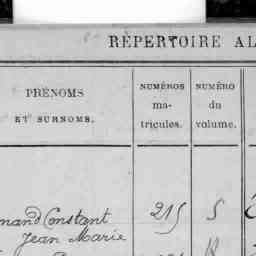 RÉPERTOIRE AL
PRÉNOMS
ET SURNOMS.
NUMÉROS
ma-
tricules.
NUMÉRO
du
volume.
mand Constant 215 5
Jean Marie